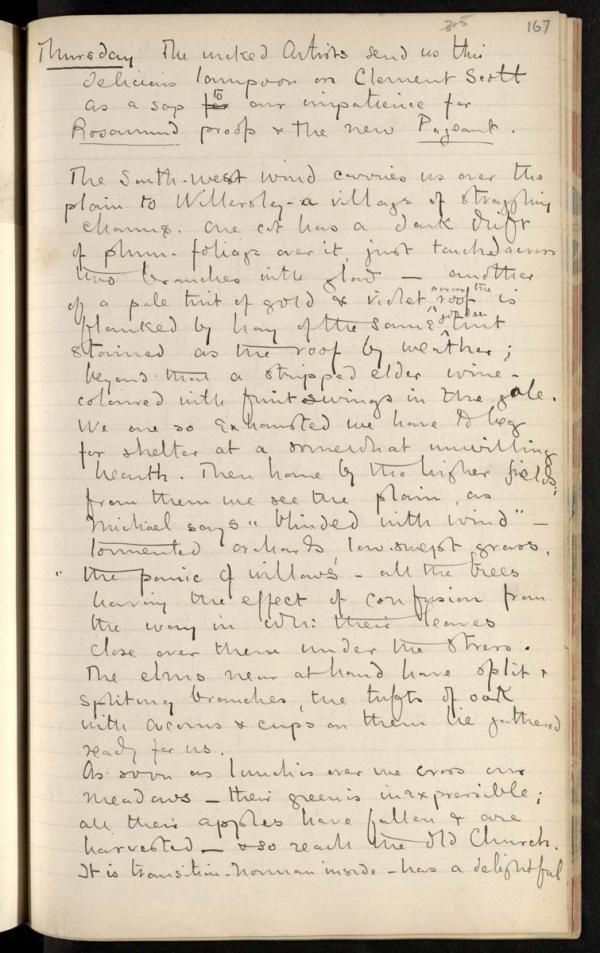 315 167
Thursday The wicked Artists send us this
delicious lampoon on Clement Scott
as a sop for to our impatience for
Rosamund proofs & the new Pageant.
The South-west wind carries us over the
plain to Willersley - a village of straggling
charms. One cot has a dark drift
of plum-foliage over it, just touched across
the branches with gold — another
of a pale tint of gold & violet across the roof is
flanked by hay of the same golden tint
stained as the roof by weather;
beyond that a stripped elder wine-
coloured with fruit swings in the gale.
We are so exhausted we have to beg
for shelter at a somewhat unwilling
hearth. Then home by the higher fields;
from them we see the plain, as
Michael says "blinded with wind" —
tormented orchards, low-swept grass,
" the panic of willows' - all the trees
having the effect of confusion from
the way in wh: their leaves
close over them under the stress.
The elms near at hand have split &
spliting branches, the tufts of oak
with acorns & cups on them lie gathered
ready for us.
As soon as lunch is over we cross our
meadows — their green is inexpressible;
all their apples have fallen & are
harvested — & so reach the Old Church.
It is transition-Norman inside - has a delightful